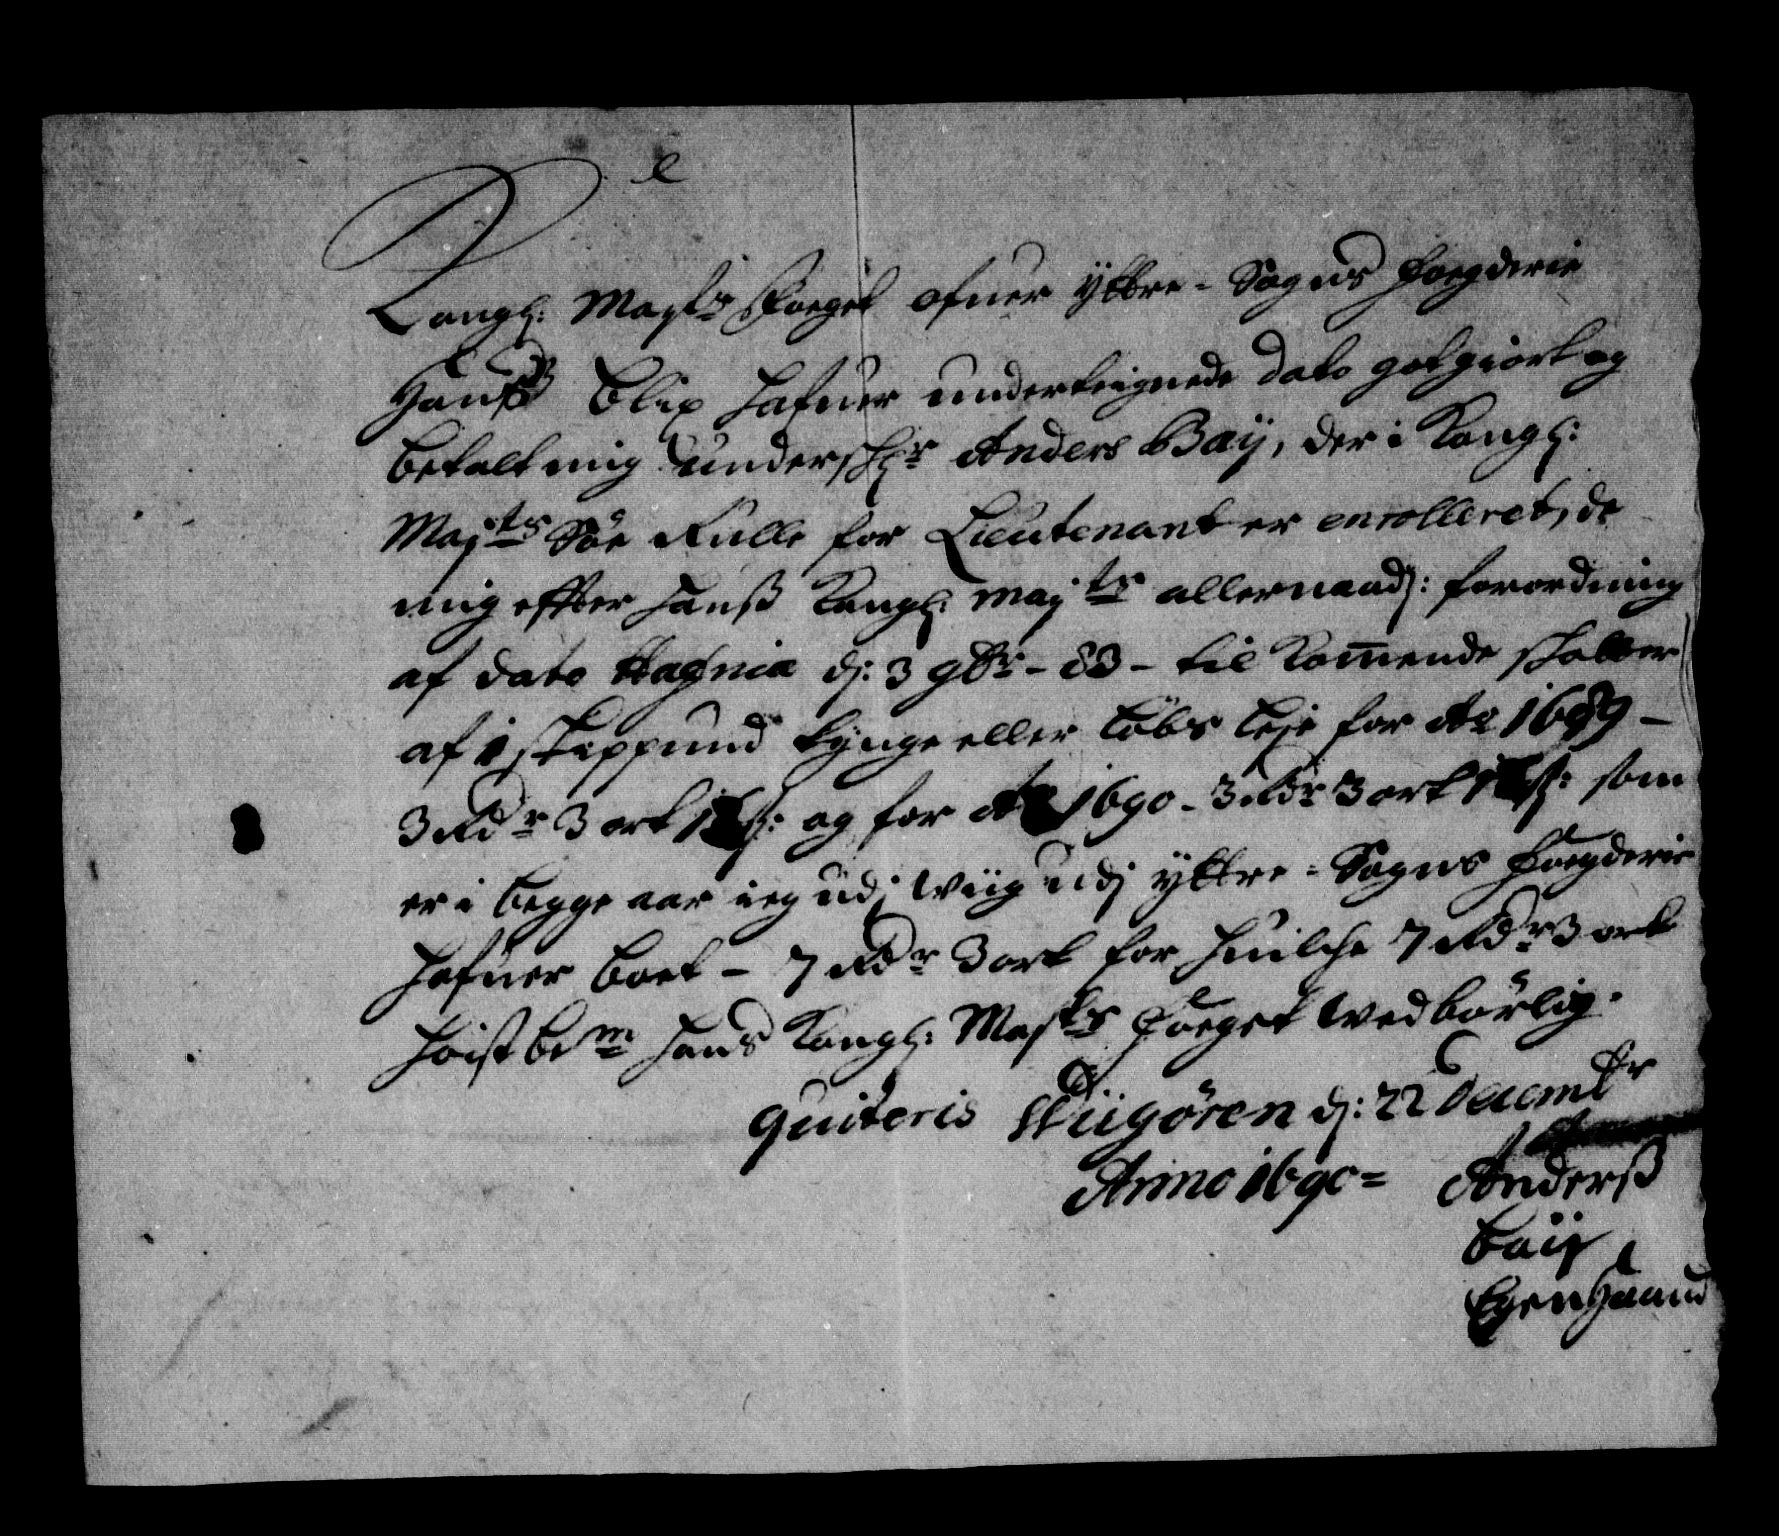 e
Kongl: Maysts Foeget ofuer yttre-Sogns Foegderie
Hanß Blix hafuer underteignede dato gotgiort og
betalt mig underschr Anders Baÿ, der i Kongl:
Majts Söe Rulle for Lieutenant er enrolleret, de
mig effter Hanß Kongl: Majts allernaad: forordning
af dato Hafnia d: 3 9br-83- til Komende skatter
af 1 skippund tynge eller Löbs leje for Ao 1689-
3 Rdr 3 ort s: og for Ao 1690- 3 Rdr 3 ort s: som
er i begge aar jeg udj Wiig udj yttre-Sogns Foegderie
hafuer boet- 7 Rdr 3 ort for huilche 7 Rdr 3 ort
höistbem Hans Kongl: Mayts Foeget wedbörlig
quiteris Wiigören d: 22 Decembr
Anno 1690= Anderß
Baÿ
Egen Haand